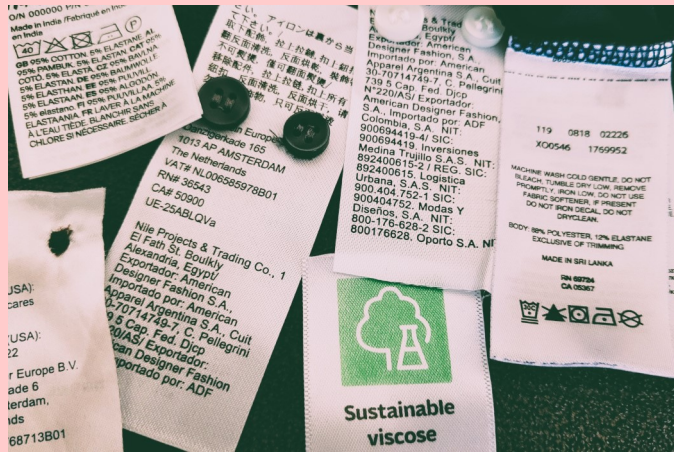 O/N 000000 P/N
Made in India /Fabriqué en Inde
en India
GB 95% COTTON, 5% ELASTANE AL
95% PAMBUK, 5% ELASTAN, CAT 95%
COTÓ, 5% ELASTÀ, CZ 95% BAVLNA
5% ELASTAN, DE 95% BAUMWOLLE
5% ELASTHAN, EE
5% ELASTAAN, ES 95% ALGODÓN,
5% elastano, FI 95% PUUVILLAA, 5%
ELASTAANIA, FR LAVER À LA MACHINE
À L'EAU TIÈDE, BLANCHIR SANS
CHLORE SI NÉCESSAIRE, SÉCHER À
USA):
cares
(USA):
22
r Europe B.V.
ade 6
terdam,
nds
68713B01
下さい。アイロンは裏から当
Europe
Danzigerkade 165
1013 AP AMSTERDAM
The Netherlands
VAT# NL006585978B01
RN# 36543
CA# 50900
UE-25ABLQVa
Nile Projects & Trading Co., 1
El Fath St. Boulkly
Alexandria, Egypt/
Exportador: American
Designer Fashion S.A.,
Importado por: American
Apparel Argentina S.A., Cuit
30-70714749-7, C. Pellegrini
739 5 Cap. Fed. Djcp
220/AS/ Exportador:
American Designer Fashion
Importado por: ADF
Boulkly
Egypt/
Exportador: American
Designer Fashion S.A.,
Importado por: American
Apparel Argentina S.A., Cuit
30-70714749-7, C. Pellegrini
739 5 Cap. Fed. Djcp
N°220/AS/ Exportador:
American Designer Fashion,
S.A., Importado por: ADF
Colombia, S.A. NIT:
900694419-4/ SIC:
900694419. Inversiones
Medina Trujillo S.A.S. NIT:
892400615-2 / REG. SIC:
892400615. Logistica
Urbana, S.A.S. NIT:
900.404.752-1 SIC:
900404752. Modas Y
Diseños, S.A. NIT:
800-176-628-2 SIC:
800176628. Oporto S.A. NI
Sustainable
viscose
119 0818 02226
XO0546 1769952
MACHINE WASH COLD GENTLE, DO NOT
BLEACH, TUMBLE DRY LOW, REMOVE
PROMPTLY, IRON LOW, DO NOT USE
FABRIC SOFTENER, IF PRESENT
DO NOT IRON DECAL, DO NOT
DRYCLEAN.
BODY: 88% POLYESTER, 12% ELASTANE
EXCLUSIVE OF TRIMMING
MADE IN SRI LANKA
RN 69724
CA 05367